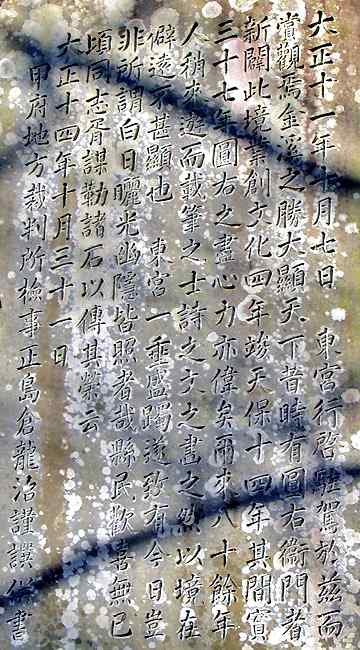 大正十一年十月七日　東宮行啓駐駕於茲而
賞觀焉金溪之勝大顯天下昔時有圓右衞門者
新闢此境業創文化四年竣天保十四年其間實
三十七年圓右之盡心力亦偉矣爾來八十餘年
人稍來遊而載筆之士詩之文之畫之然以境在
僻遠不甚顯也　東宮一垂盛躅遂致有今日豈
非所謂白日曬光幽隱皆照者哉縣民歡喜無已
頃同志胥謀勒諸石以傳其榮云
大正十四年十月三十一日
甲府地方裁判所檢事正島倉龍治謹譔 書